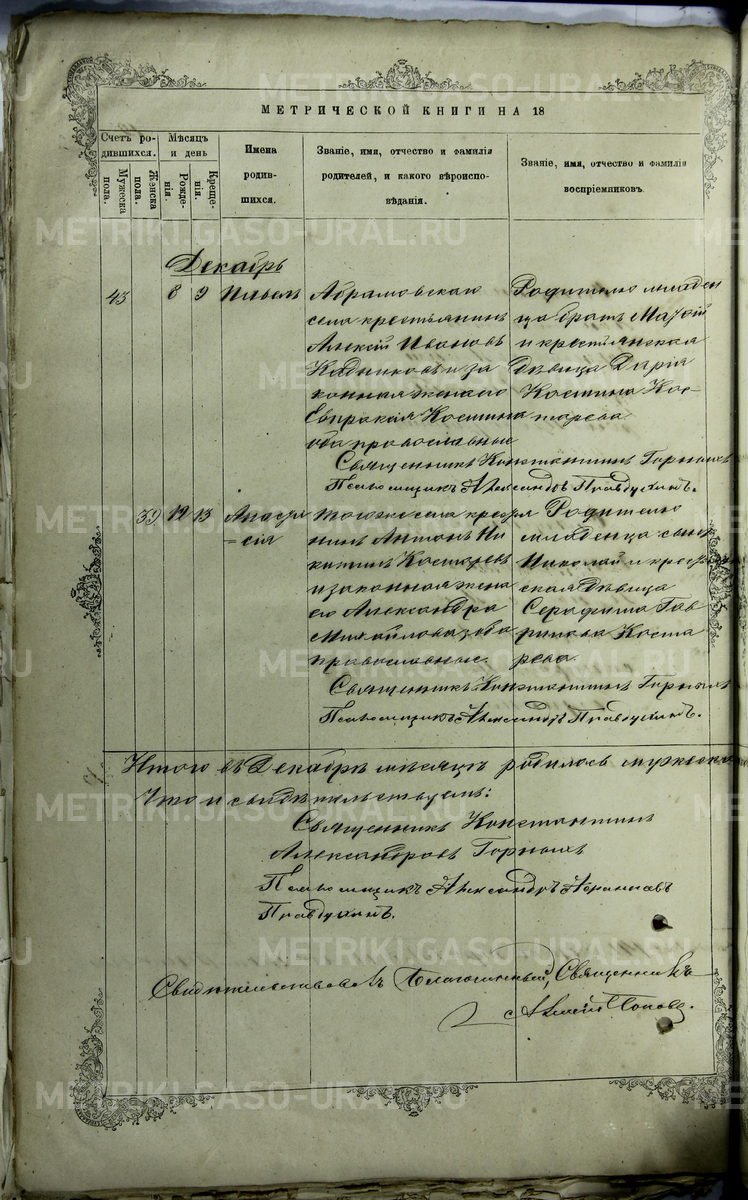 МЕТРИЧЕСКОЙ КНИГИ НА 18
Счетъ ро-
дившихся.
Мужеска
пола.
Женска
пола.
Мѣсяцъ
и день
Рожде-
нія.
Креще-
нія.
Имена
родив-
шихся.
Званіе, имя, отчество и фамилія
родителей, и какого вѣроиспо-
вѣданія.
Званіе, имя, отчество и фамилія
воспріемниковъ.
Декабрь
43 8 9 Павелъ
Абрамовскаго
села крестьянинъ
Алексій Ивановъ
Кадниковъ и за
конная жена его
Евпраксія Космина
оба православные
Родителю младен
ца братъ
и крестьянская
дѣвица Дарія
Космина Кос-
тарева
Священникъ Константинъ Горныхъ
Псаломщикъ Александръ Правдухинъ.
39 12 13 Анаста
=сія
тогоже села крест
нинъ Антонъ Ни
китинъ Костаревъ
и законная жена
его Александра
Михайлова оба
православные.
Родителю
младенца сынъ
Николай и крест
ская дѣвица
Серафима Гав
рилова Коста
рева
Священникъ Константинъ Горныхъ
Псаломщикъ Александръ Правдухинъ.
Итого въ Декабрѣ мѣсяцѣ родилось мужеска
Что и свидѣтельствуемъ:
Священникъ Константинъ
Александровъ Горныхъ
Псаломщикъ Александръ
Правдухинъ.
Свидѣтельствовалъ Благочинный, Священникъ
Алексій Поповъ.
METRIKI.GASO-URAL.RU